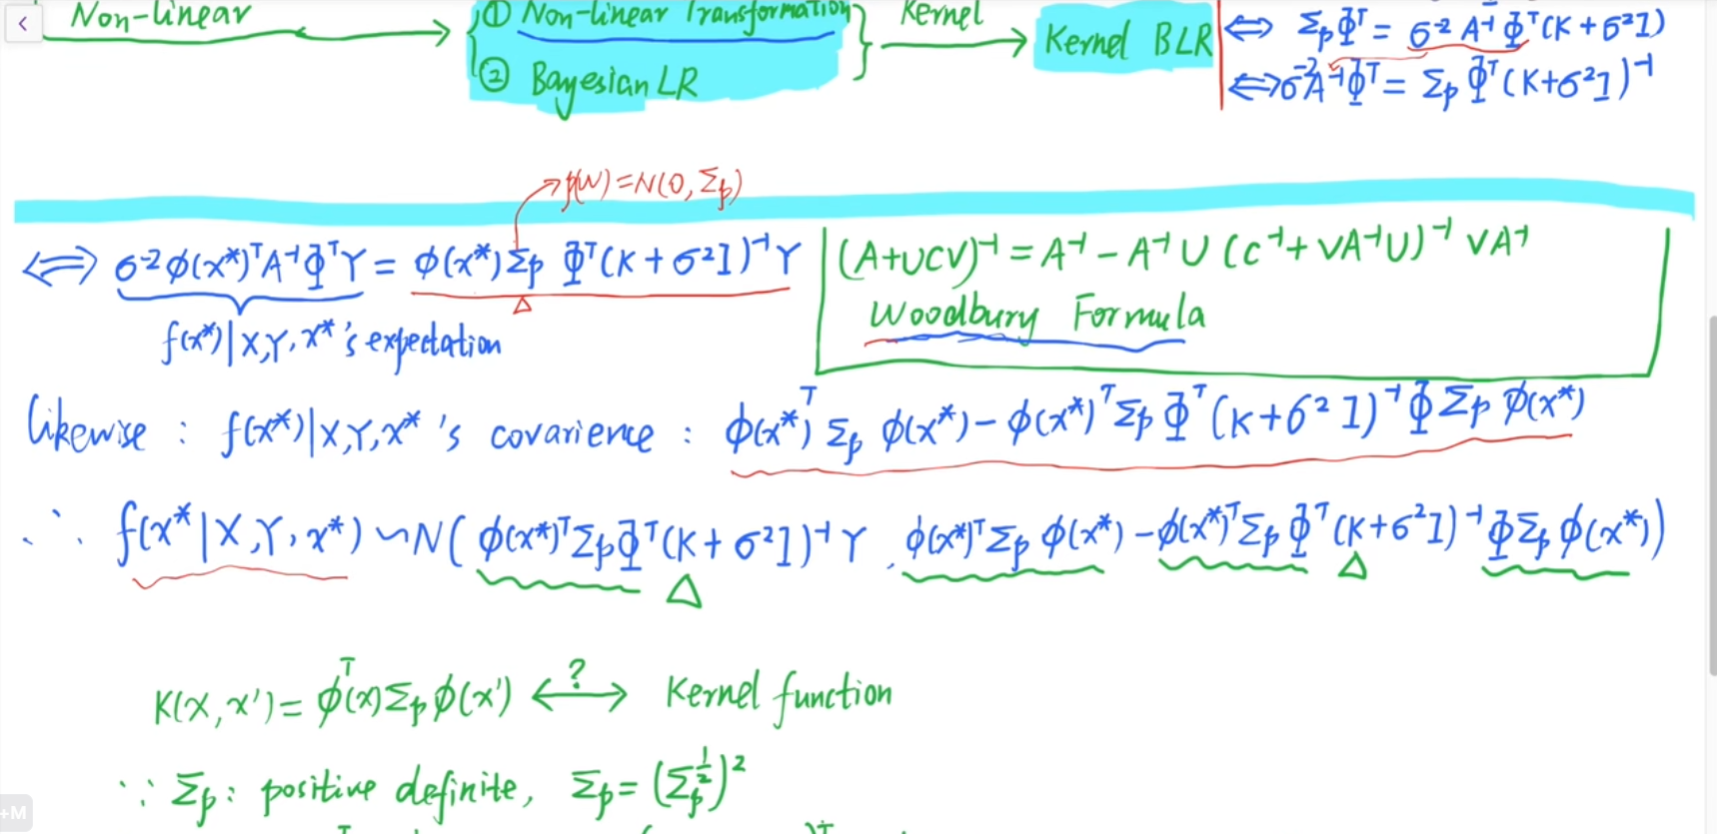 Non-linear
① Non-linear Transformation
② Bayesian LR
Kernel
Kernel BLR
⟺ Σp Φᵀ = σ⁻² A⁻¹ Φᵀ (K + σ²I)
⟺ σ⁻² A⁻¹ Φᵀ = Σp Φᵀ (K + σ²I)⁻¹
p(w) = N(0, Σp)
⟺ σ⁻² ϕ(x*)ᵀ A⁻¹ Φᵀ Y = ϕ(x*) Σp Φᵀ (K + σ²I)⁻¹ Y
f(x*)|X,Y,x*'s expectation
(A+UCV)⁻¹ = A⁻¹ - A⁻¹ U (C⁻¹ + VA⁻¹U)⁻¹ VA⁻¹
Woodbury Formula
likewise : f(x*)|X,Y,x* 's covarience : ϕ(x*)ᵀ Σp ϕ(x*) - ϕ(x*)ᵀ Σp Φᵀ (K + σ² I)⁻¹ Φ Σp ϕ(x*)
∴ f(x*|X,Y,x*) ~ N( ϕ(x*)ᵀ Σp Φᵀ (K + σ²I)⁻¹ Y , ϕ(x*)ᵀ Σp ϕ(x*) - ϕ(x*)ᵀ Σp Φᵀ (K+σ²I)⁻¹ Φ Σp ϕ(x*))
K(x,x') = ϕᵀ(x) Σp ϕ(x') ⟷? Kernel function
∵ Σp : positive definite, Σp = (Σp^½)²
+M